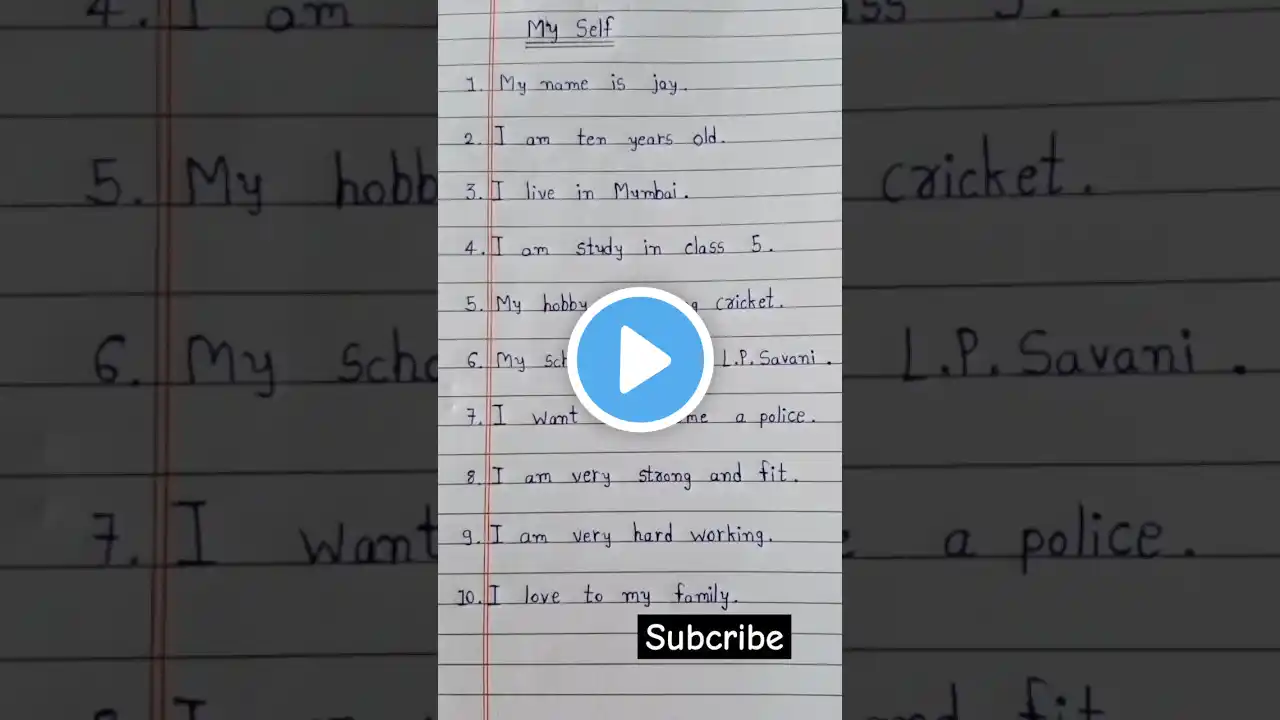 My Self
1. My name is jay.
2. I am ten years old.
3. I live in Mumbai.
4. I am study in class 5.
5. My hobby cricket.
6. My L.P. Savani.
7. I want a police.
8. I am very strong and fit.
9. I am very hard working.
10. I love to my family.
Subcribe
4. I am
5. My cricket.
6. My L.P. Savani.
7. I want a police.
fit